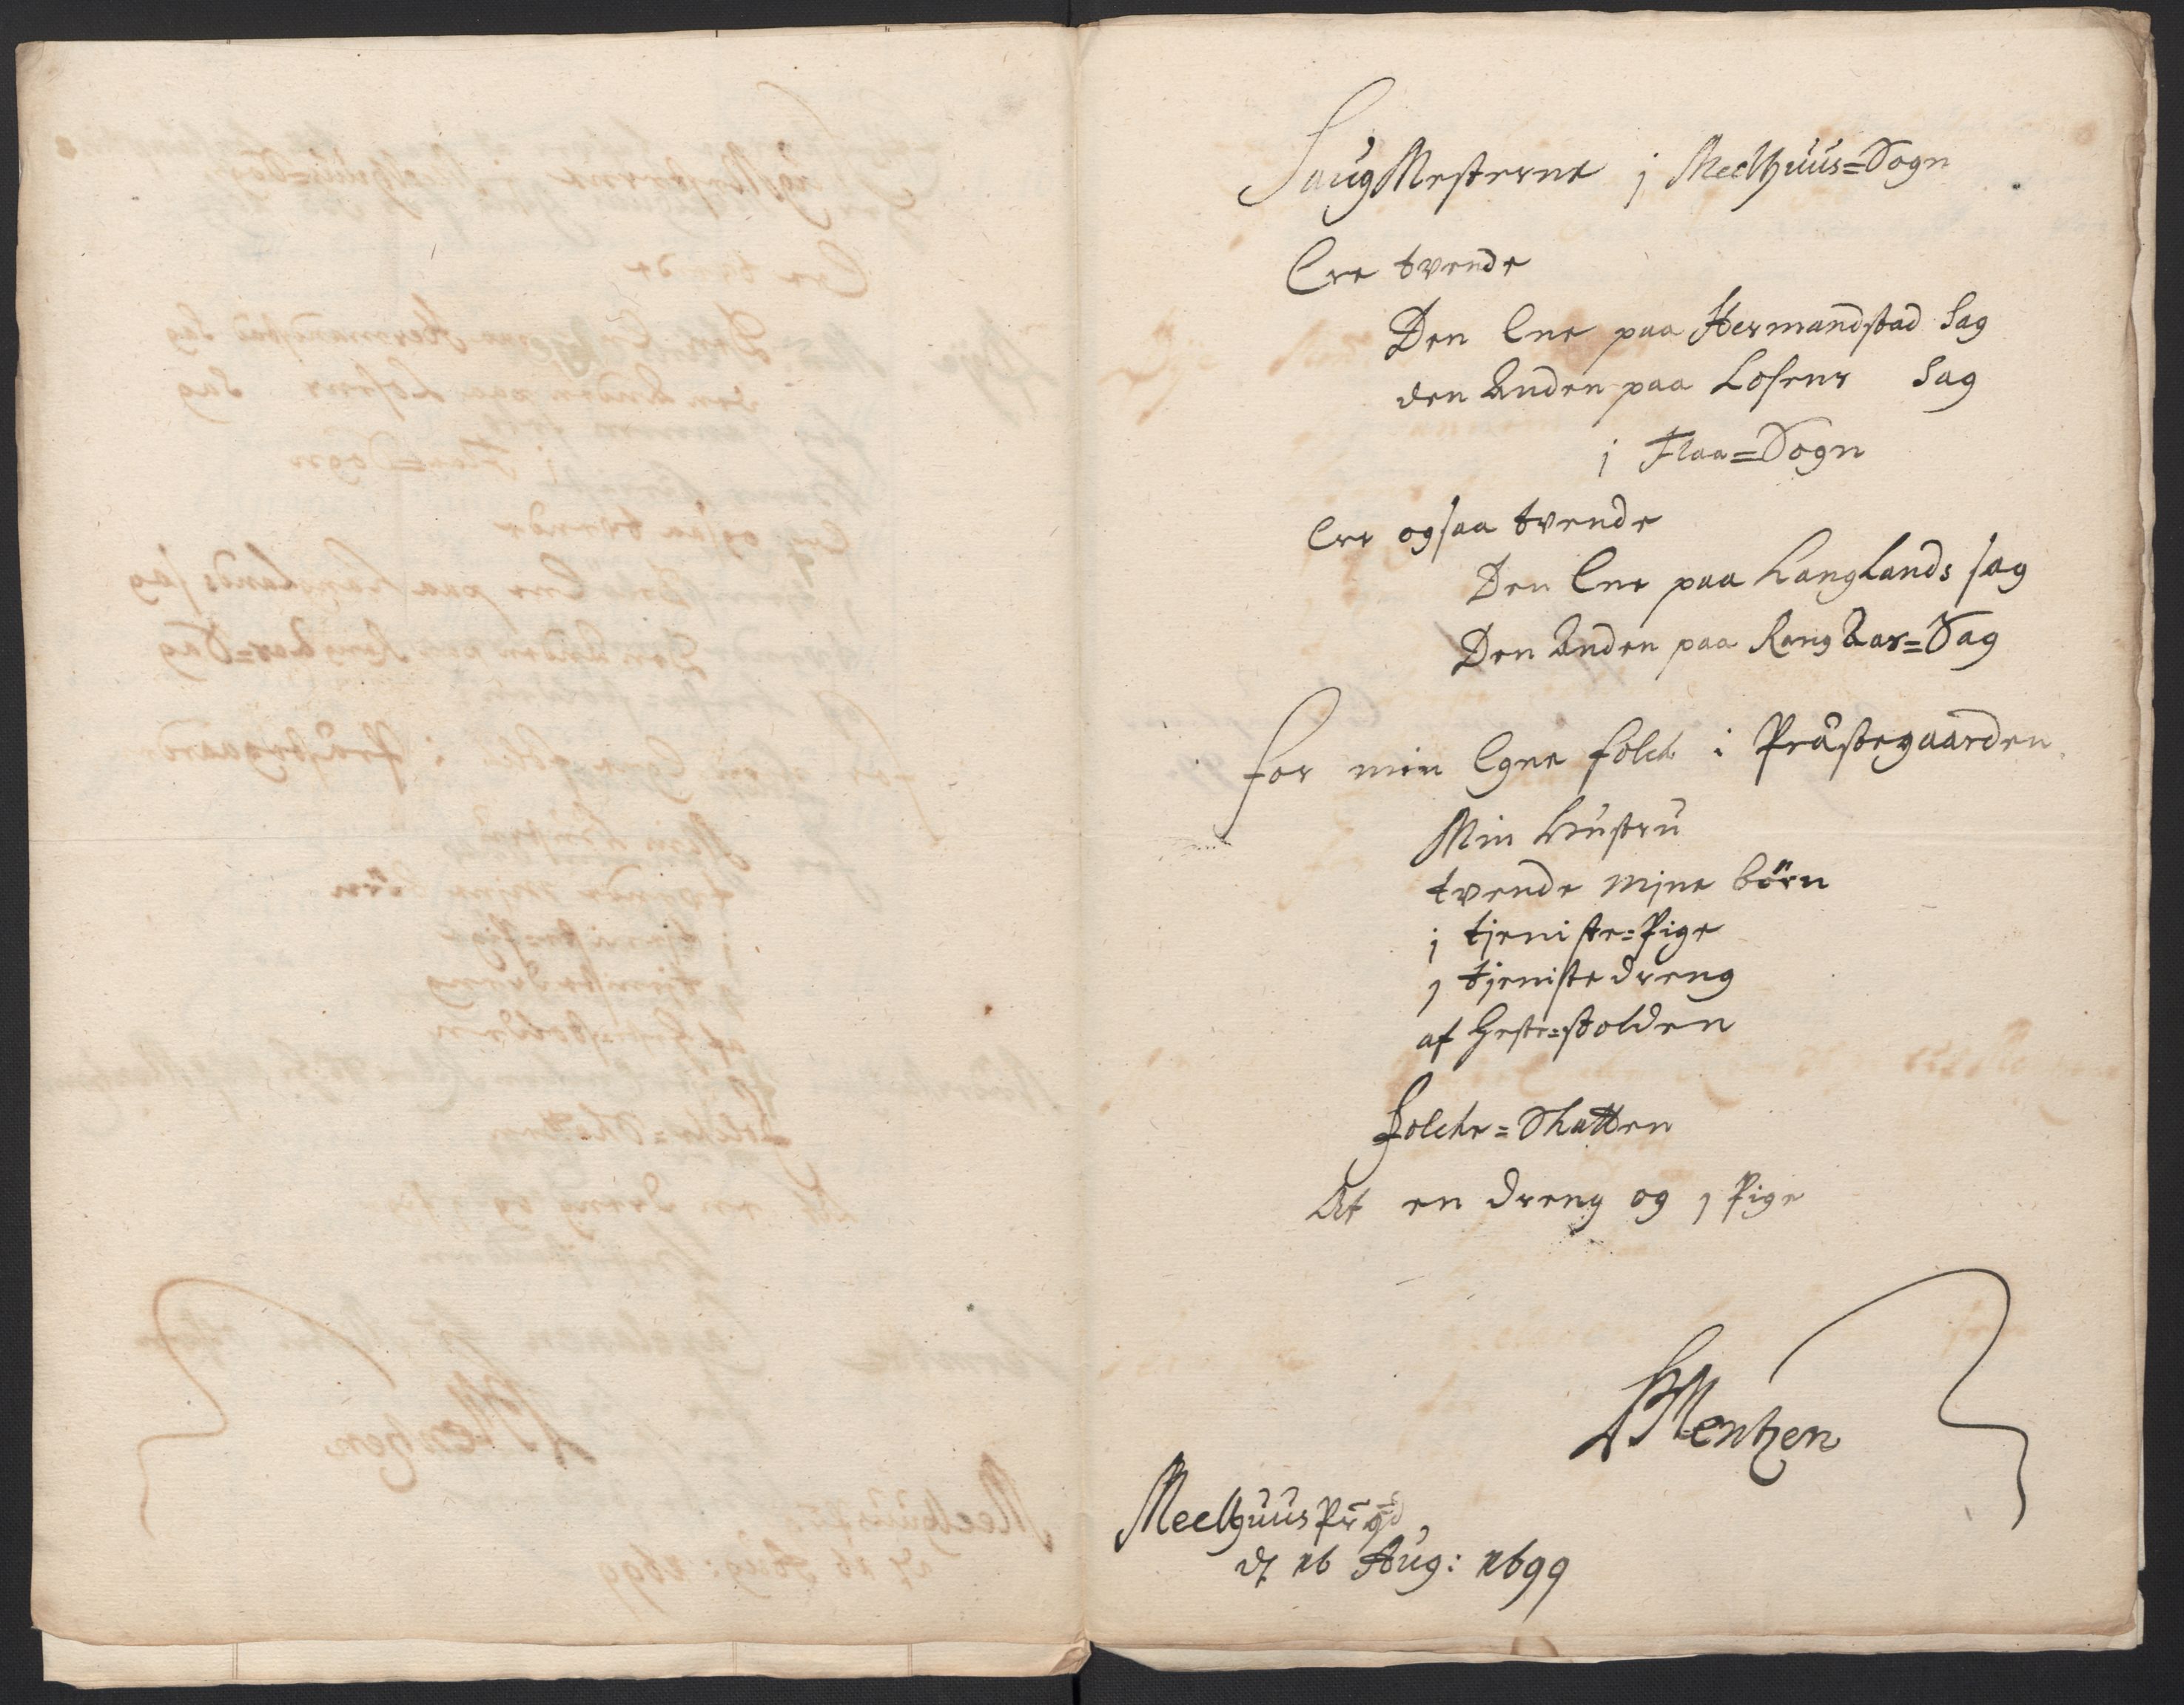 SaugMesterne j Meelhuus=Sogn
Ere tvende
Den Ene paa Hermandstad Sag
den Anden paa Losens Sag
j Flaa=Sogn
Ere ogsaa tvende
Den Ene paa Langlands sag
Den Anden paa Sag
for min Egne folck i Præstegaarden
Min Hustru
tvende mine börn
j tjeniste=Pige
1 tjeniste dreng
af
Folcke=Skatten
At en dreng og 1 Pige
Mentzen
Meelhuus Prgd
d 16 Aug: 1699